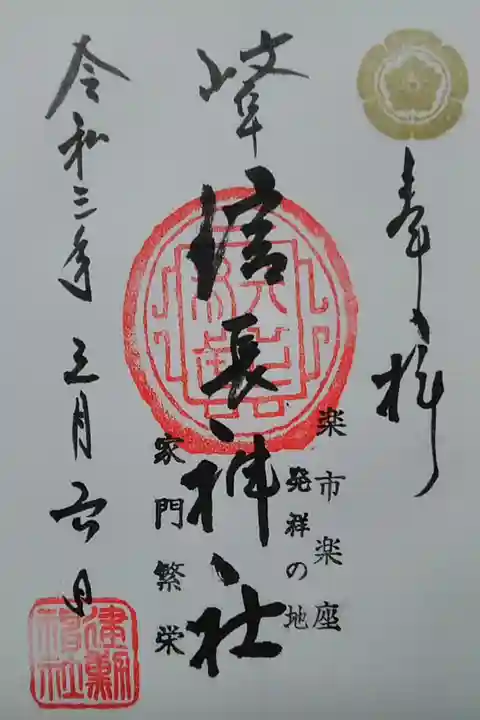 奉拝
楽市楽座
発祥の地
岐阜
信長神社
家門繁栄
令和三年三月六日
建勲神社